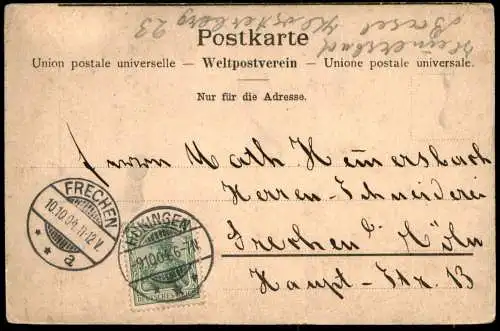 Heimersbach
Basel
Klosterberg 23
Postkarte
Union postale universelle — Weltpostverein — Unione postale universale.
Nur für die Adresse.
Herrn Math. Heimersbach
Herren-Schneiderei
Frechen b. Köln
Haupt-Str. 13
FRECHEN
10.10.04. 11-12 V.
* * a
HÖNINGEN
9.10.04. 6-7 N.